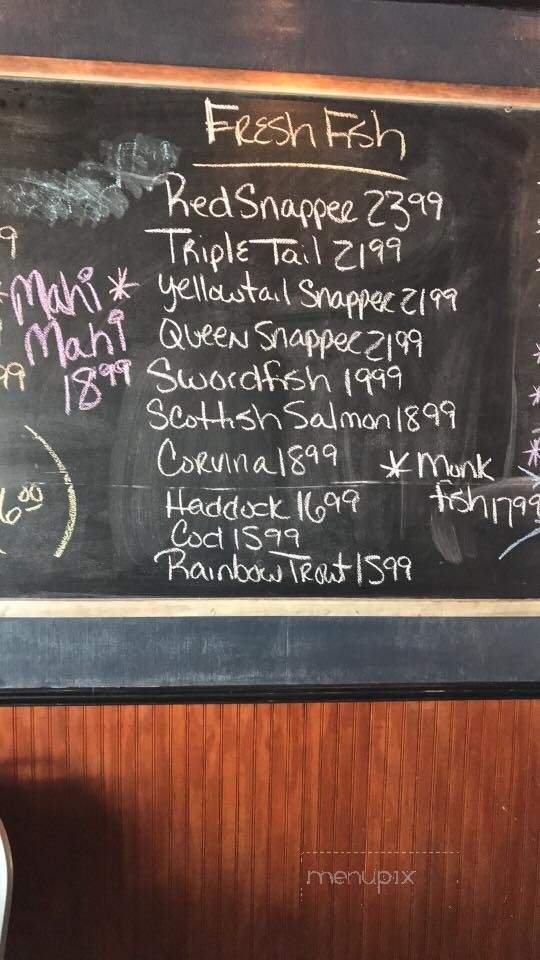 Fresh Fish
Red Snapper 2399
Triple Tail 2199
Yellowtail Snapper 2199
Queen Snapper 2199
Swordfish 1999
Scottish Salmon 1899
Corvina 1899
Haddock 1699
Cod 1599
Rainbow Trout 1599
*Mahi*
Mahi
1899
*Monk
fish 1799
9
99
6.00
menupix